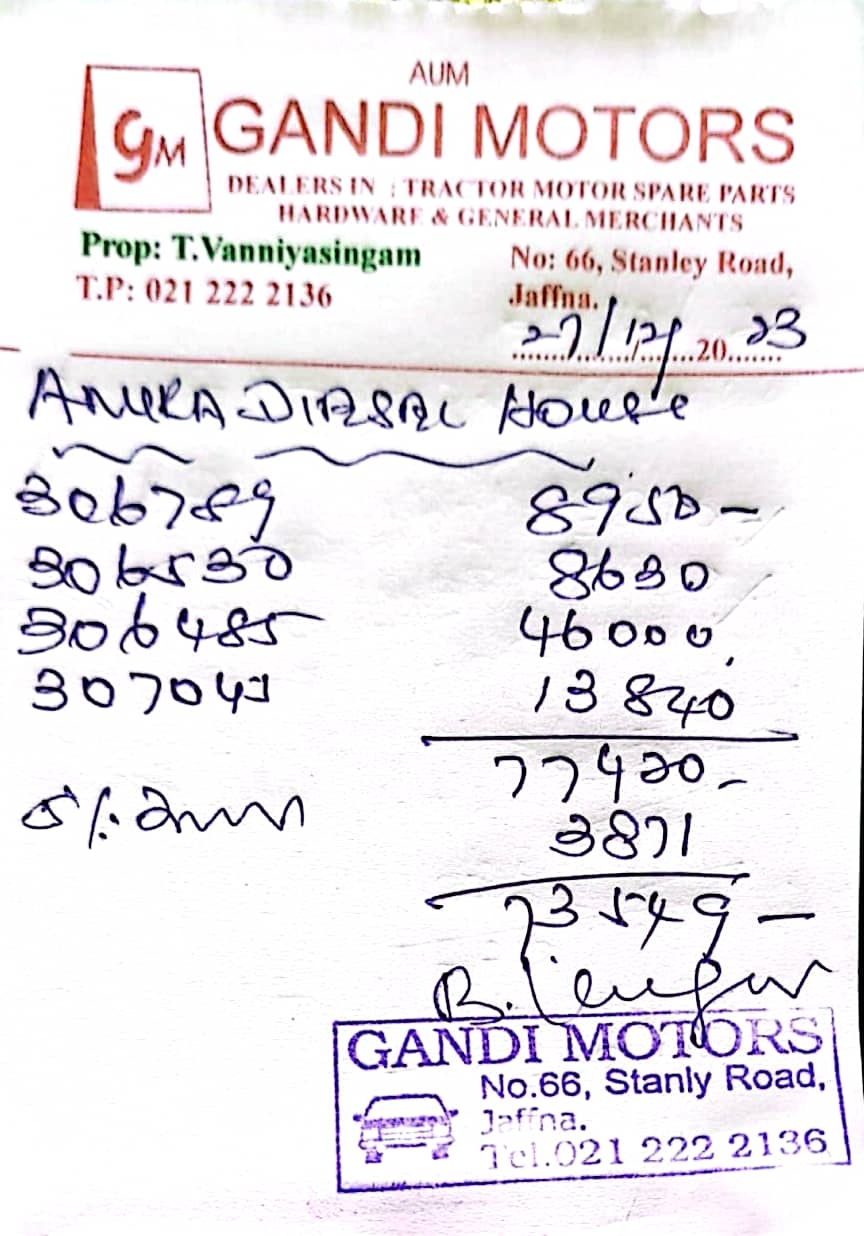 AUM
GM GANDI MOTORS
DEALERS IN : TRACTOR MOTOR SPARE PARTS
HARDWARE & GENERAL MERCHANTS
Prop: T.Vanniyasingam
T.P: 021 222 2136
No: 66, Stanley Road,
Jaffna.
27/12/ 20 23
ANURA DIESEL HOUSE
306789 8950-
306530 8630
306485 46000
307041 13 840
77420-
5%
3871
73549-
B.
GANDI MOTORS
No.66, Stanly Road,
Jaffna.
Tel.021 222 2136